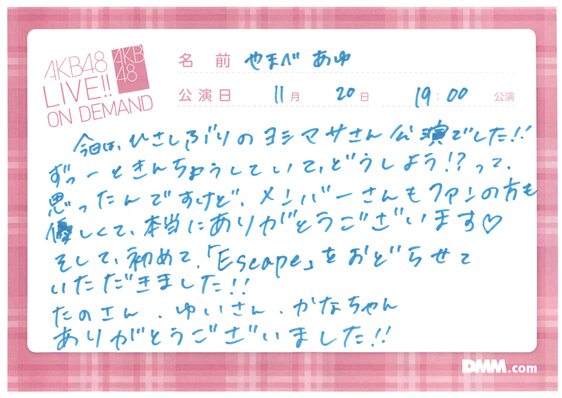 AKB48
LIVE!!
ON DEMAND
AKB
48
名前 やまべ あゆ
公演日 11月 20日 19:00 公演
今日は、ひさしぶりのヨシマサさん公演でした!!
ずっーときんちょうしていて、どうしよう!?って、
思ったんですけど、メンバーさんもファンの方も
優しくて、本当にありがとうございます♡
そして、初めて、「Escape」をおどらせて
いただきました!!
たのさん、ゆいさん、かなちゃん
ありがとうございました!!
DMM.com